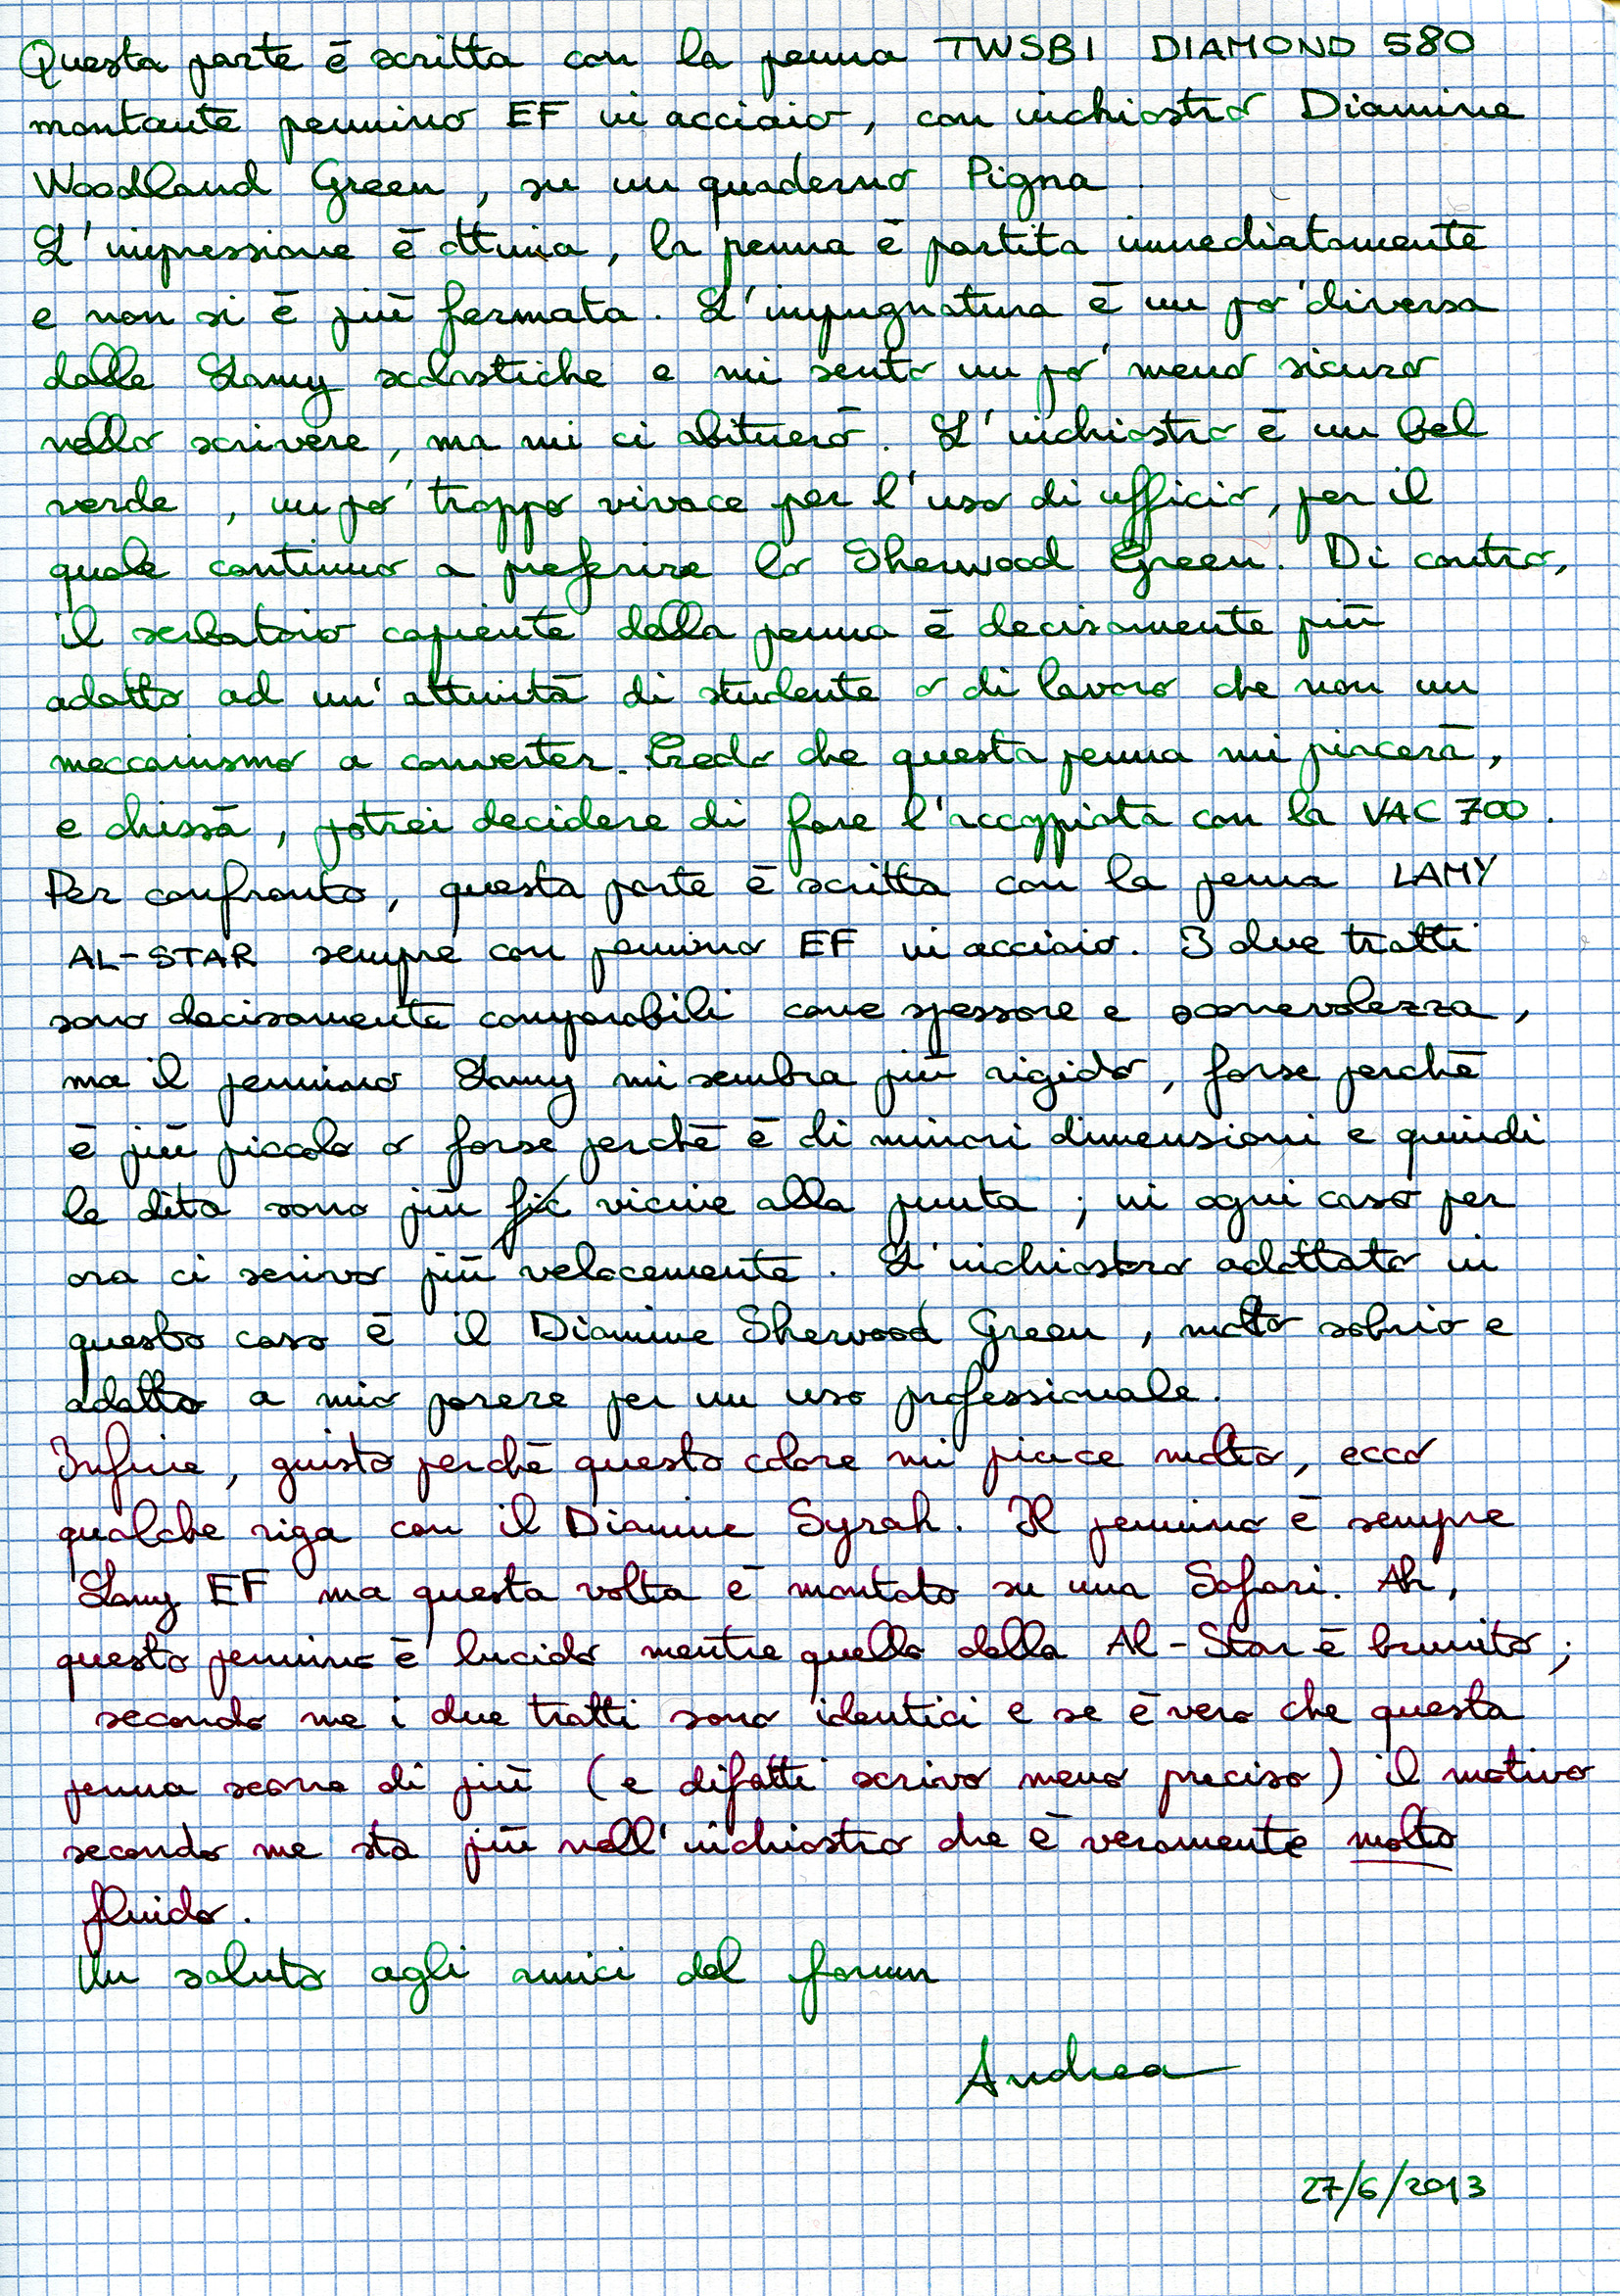 Questa parte è scritta con la penna TWSBI DIAMOND 580
montante pennino EF in acciaio, con inchiostro Diamine
Woodland Green, su un quaderno Pigna.
L'impressione è ottima, la penna è partita immediatamente
e non si è più fermata. L'impugnatura è un po' diversa
dalle Lamy scolastiche e mi sento un po' meno sicuro
nello scrivere, ma mi ci abituerò. L'inchiostro è un bel
verde, un po' troppo vivace per l'uso di ufficio, per il
quale continuo a preferire lo Sherwood Green. Di contro,
il serbatoio capiente della penna è decisamente più
adatto ad un'attività di studente o di lavoro che non un
meccanismo a converter. Credo che questa penna mi piacerà,
e chissà, potrei decidere di fare l'accoppiata con la VAC 700.
Per confronto, questa parte è scritta con la penna LAMY
AL-STAR sempre con pennino EF in acciaio. I due tratti
sono decisamente comparabili come spessore e scorrevolezza,
ma il pennino Lamy mi sembra più rigido, forse perchè
è più piccolo o forse perchè è di minori dimensioni e quindi
le dita sono più vicine alla punta; in ogni caso per
ora ci scrivo più velocemente. L'inchiostro adottato in
questo caso è il Diamine Sherwood Green, molto sobrio e
adatto a mio parere per un uso professionale.
Infine, giusto perchè questo colore mi piace molto, ecco
qualche riga con il Diamine Syrah. Il pennino è sempre
Lamy EF ma questa volta è montato su una Safari. Ah,
questo pennino è lucido mentre quello della Al-Star è brunito;
secondo me i due tratti sono identici e se è vero che questa
penna scorre di più (e difatti scrivo meno preciso) il motivo
secondo me sta più nell'inchiostro che è veramente molto
fluido.
Un saluto agli amici del forum
Andrea
27/6/2013